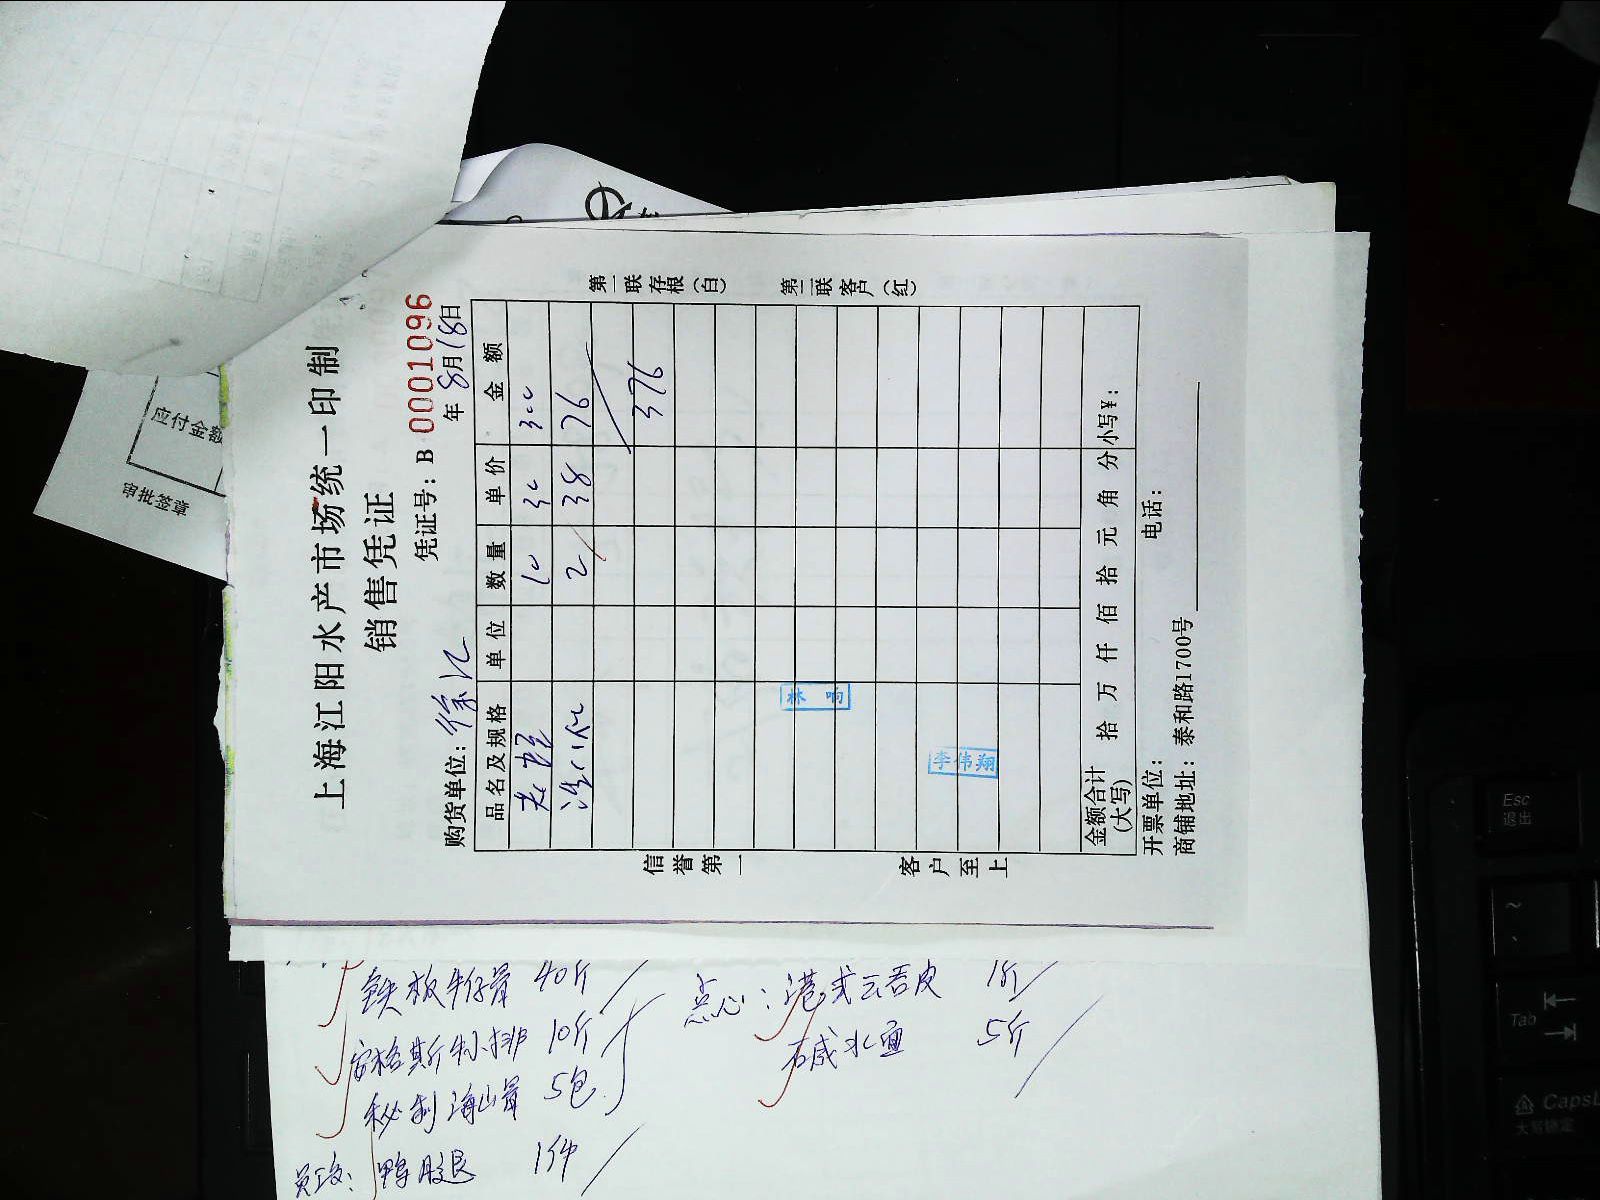 上海江阳水产市场统一印制
销售凭证
凭证号：B 0001096
购货单位：徐汇 年8月18日
品名及规格 单位 数量 单价 金额
10 30 300
2 38 76
376
林
李伟翔
金额合计(大写) 拾 万 仟 佰 拾 元 角 分 小写¥：
开票单位： 电话：
商铺地址：泰和路1700号
第一联存根(白)
第二联客户(红)
信誉第一
客户至上
应付金额
审批签章
铁板牛仔骨 40斤
安格斯牛小排 10斤
秘制海山骨 5包
鸭腿 1件
点心：港式云吞皮 1斤
碱水面 5斤
Esc
Tab
Caps
大写锁定